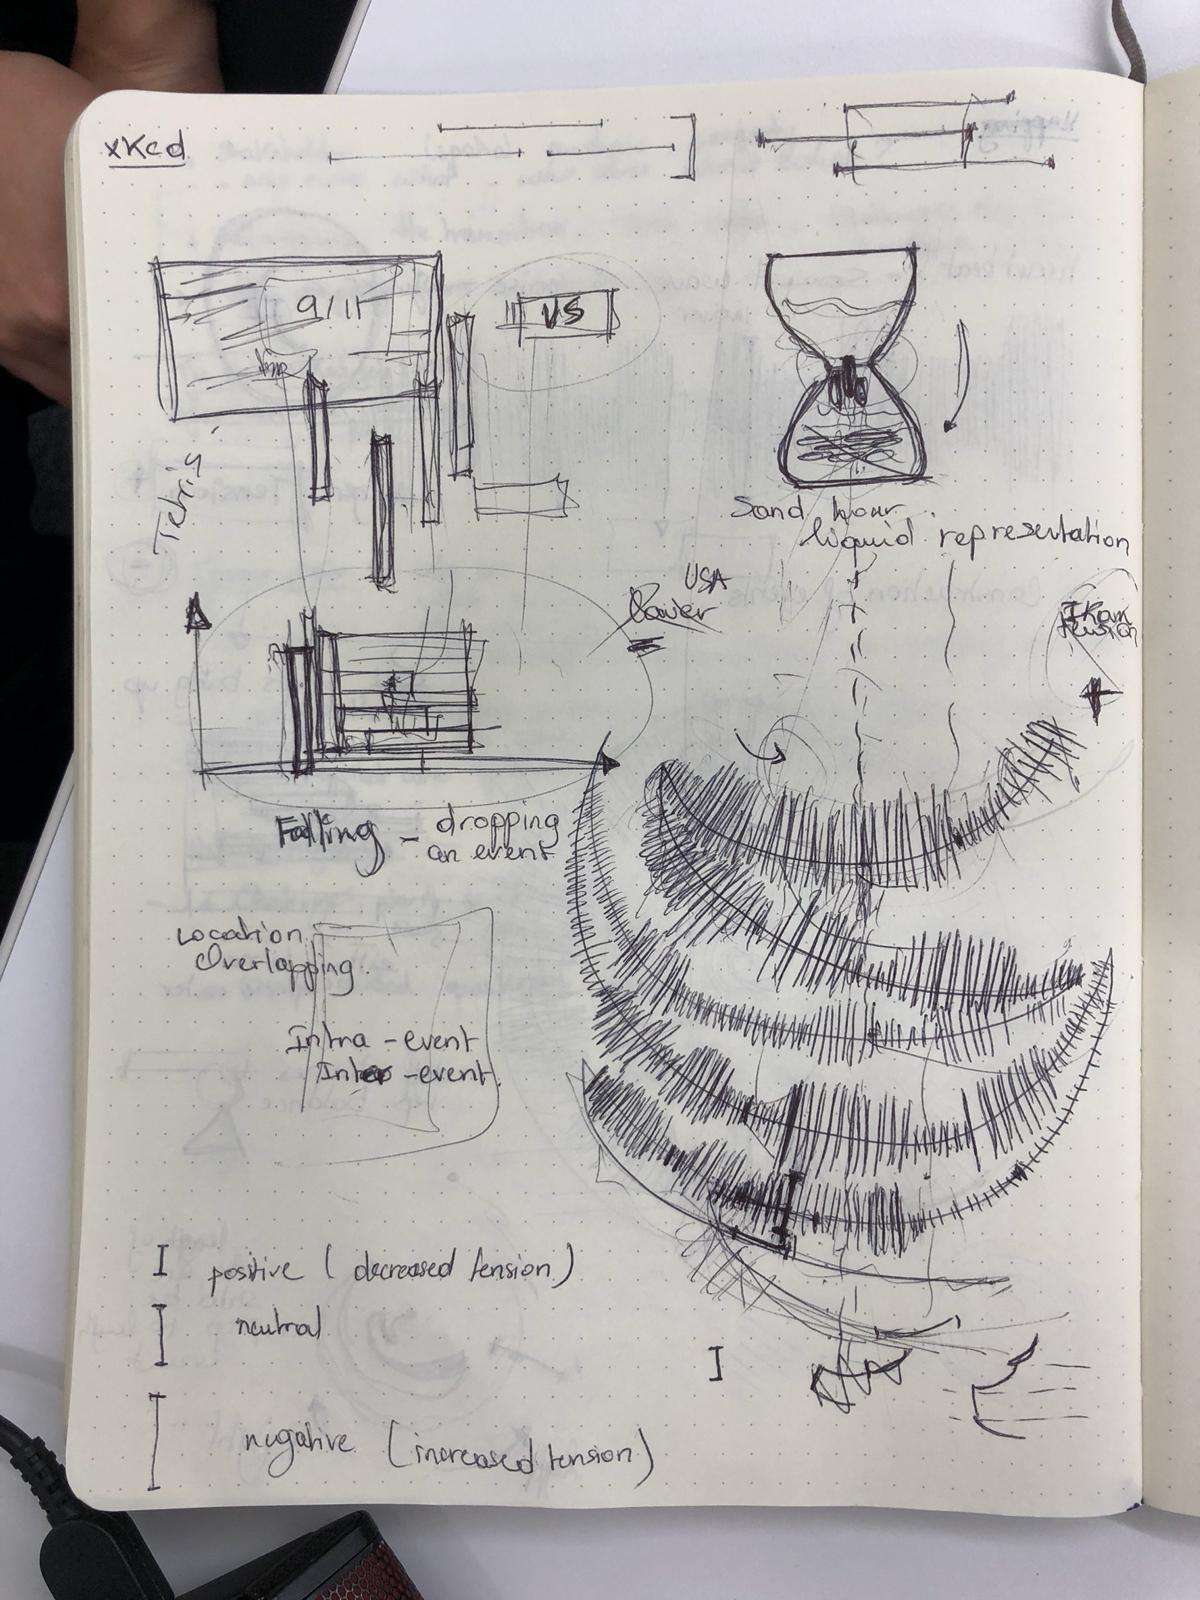 xKcd
9/11
VS
Tetris
Sand hour
liquid representation
USA
tension
Falling - dropping
an event
Location
Overlapping
Intra - event
Inter - event
I positive ( decreased tension )
I neutral
I negative ( increased tension )
I